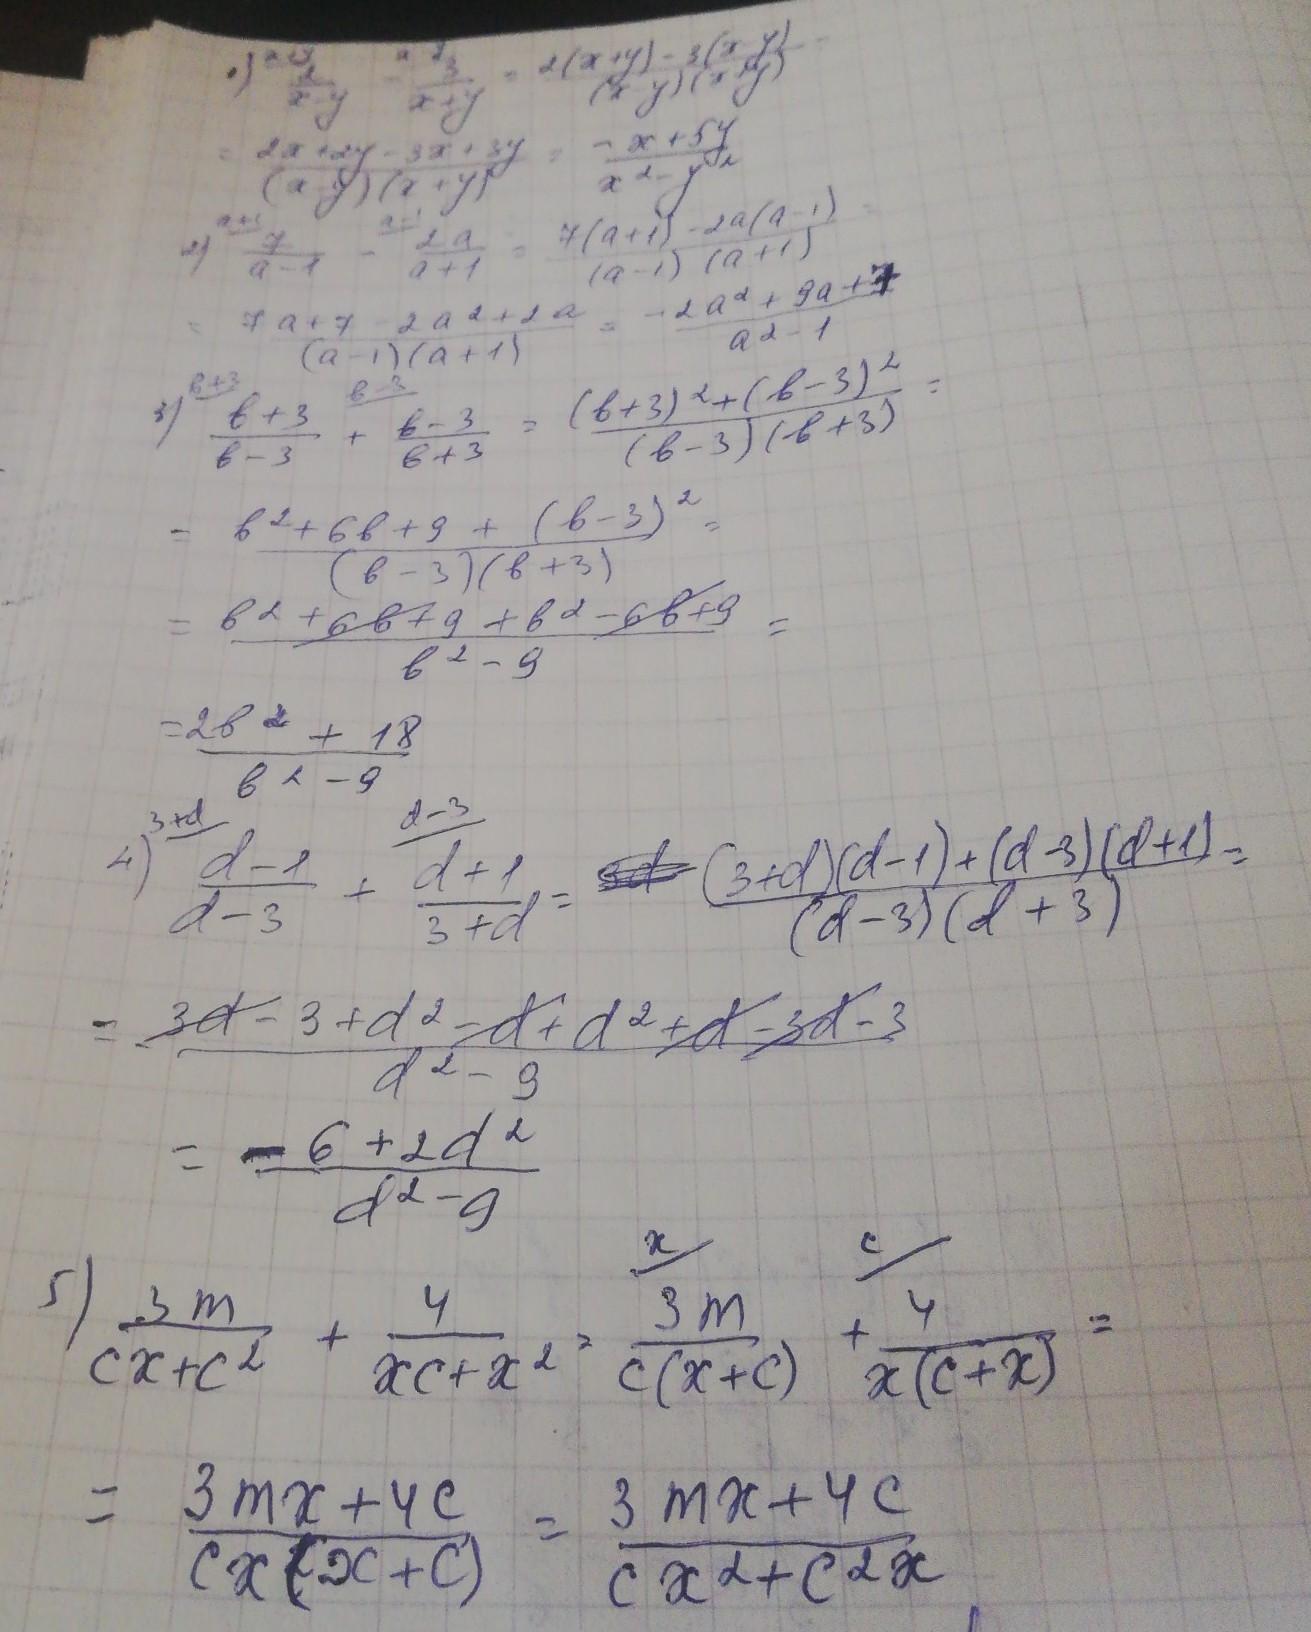 1) x+y 2/(x-y) - x-y 3/(x+y) = (2(x+y)-3(x-y))/((x-y)(x+y)) =
= (2x+2y-3x+3y)/((x-y)(x+y)) = (-x+5y)/(x²-y²)
2) a+1 7/(a-1) - a-1 2a/(a+1) = (7(a+1)-2a(a-1))/((a-1)(a+1)) =
= (7a+7-2a²+2a)/((a-1)(a+1)) = (-2a²+9a+7)/(a²-1)
3) в+3 (в+3)/(в-3) + в-3 (в-3)/(в+3) = ((в+3)²+(в-3)²)/((в-3)(в+3)) =
= (в²+6в+9+(в-3)²)/((в-3)(в+3)) =
= (в²+6в+9+в²-6в+9)/(в²-9) =
= (2в²+18)/(в²-9)
4) 3+d (d-1)/(d-3) + d-3 (d+1)/(3+d) = 3d ((3+d)(d-1)+(d-3)(d+1))/((d-3)(d+3)) =
= (3d-3+d²-d+d²+d-3d-3)/(d²-9)
= (-6+2d²)/(d²-9)
5) 3m/(cx+c²) + 4/(xc+x²) = x 3m/(c(x+c)) + c 4/(x(c+x)) =
= (3mx+4c)/(cx(x+c)) = (3mx+4c)/(cx²+c²x)